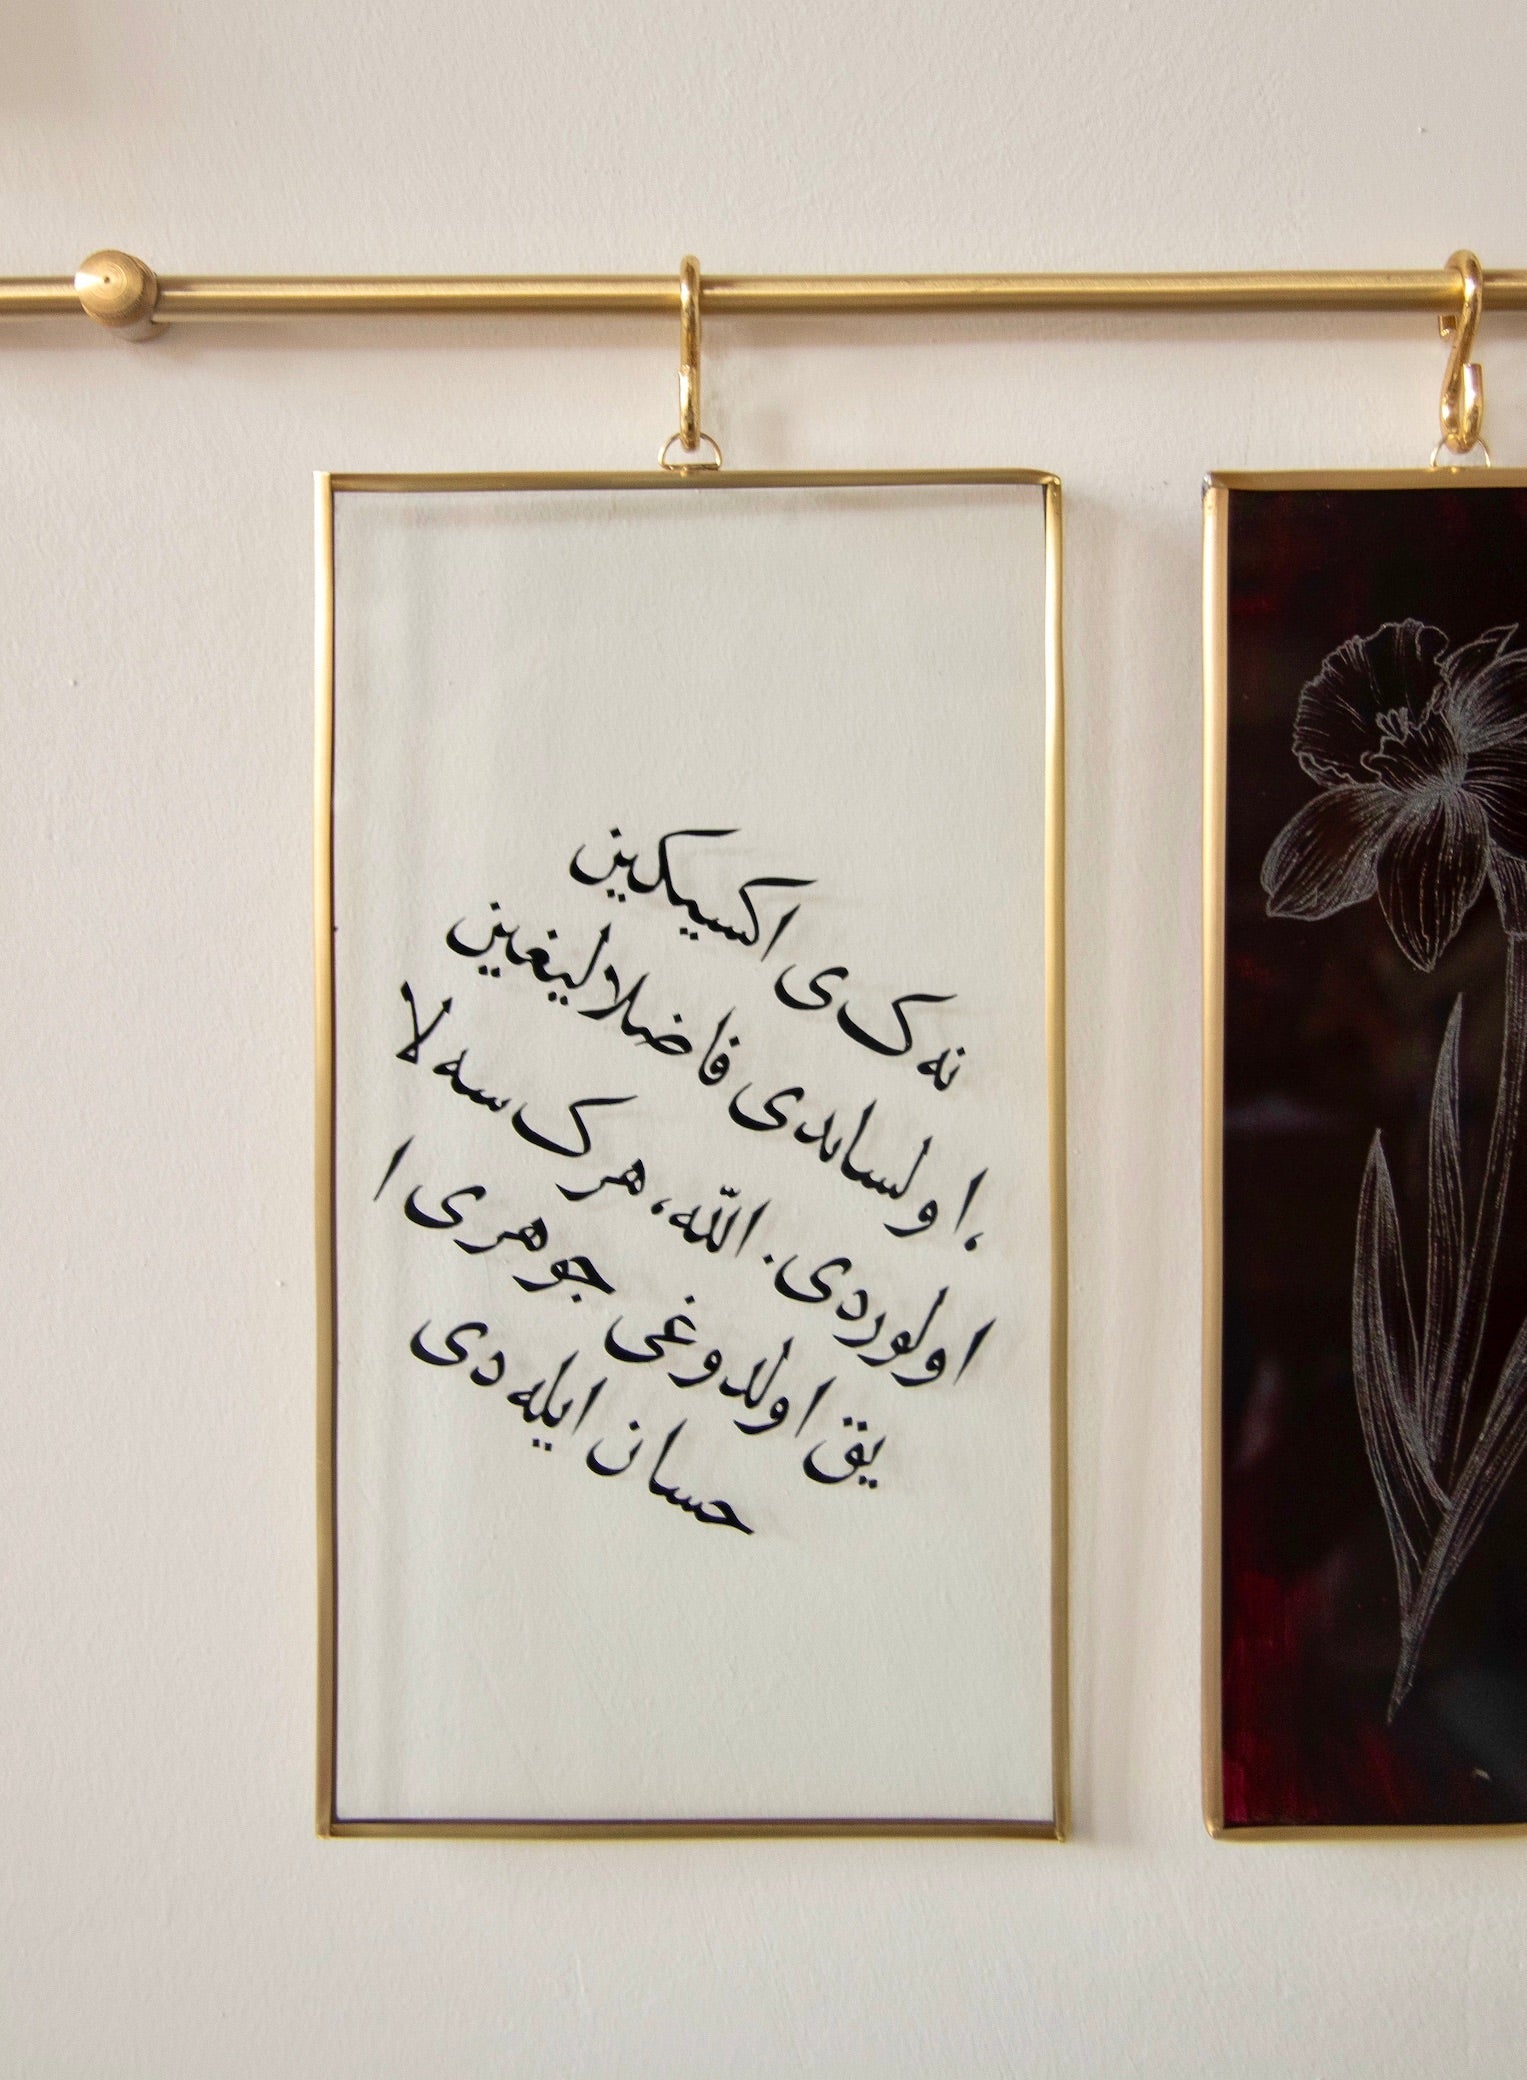 نه ک ی اکسیکین
، اولساىدی فاضلا لیغین
اولوردی. اللّٰه، هرک سه لا
یق اولدوغی جوهری ا
حسان ایله دی